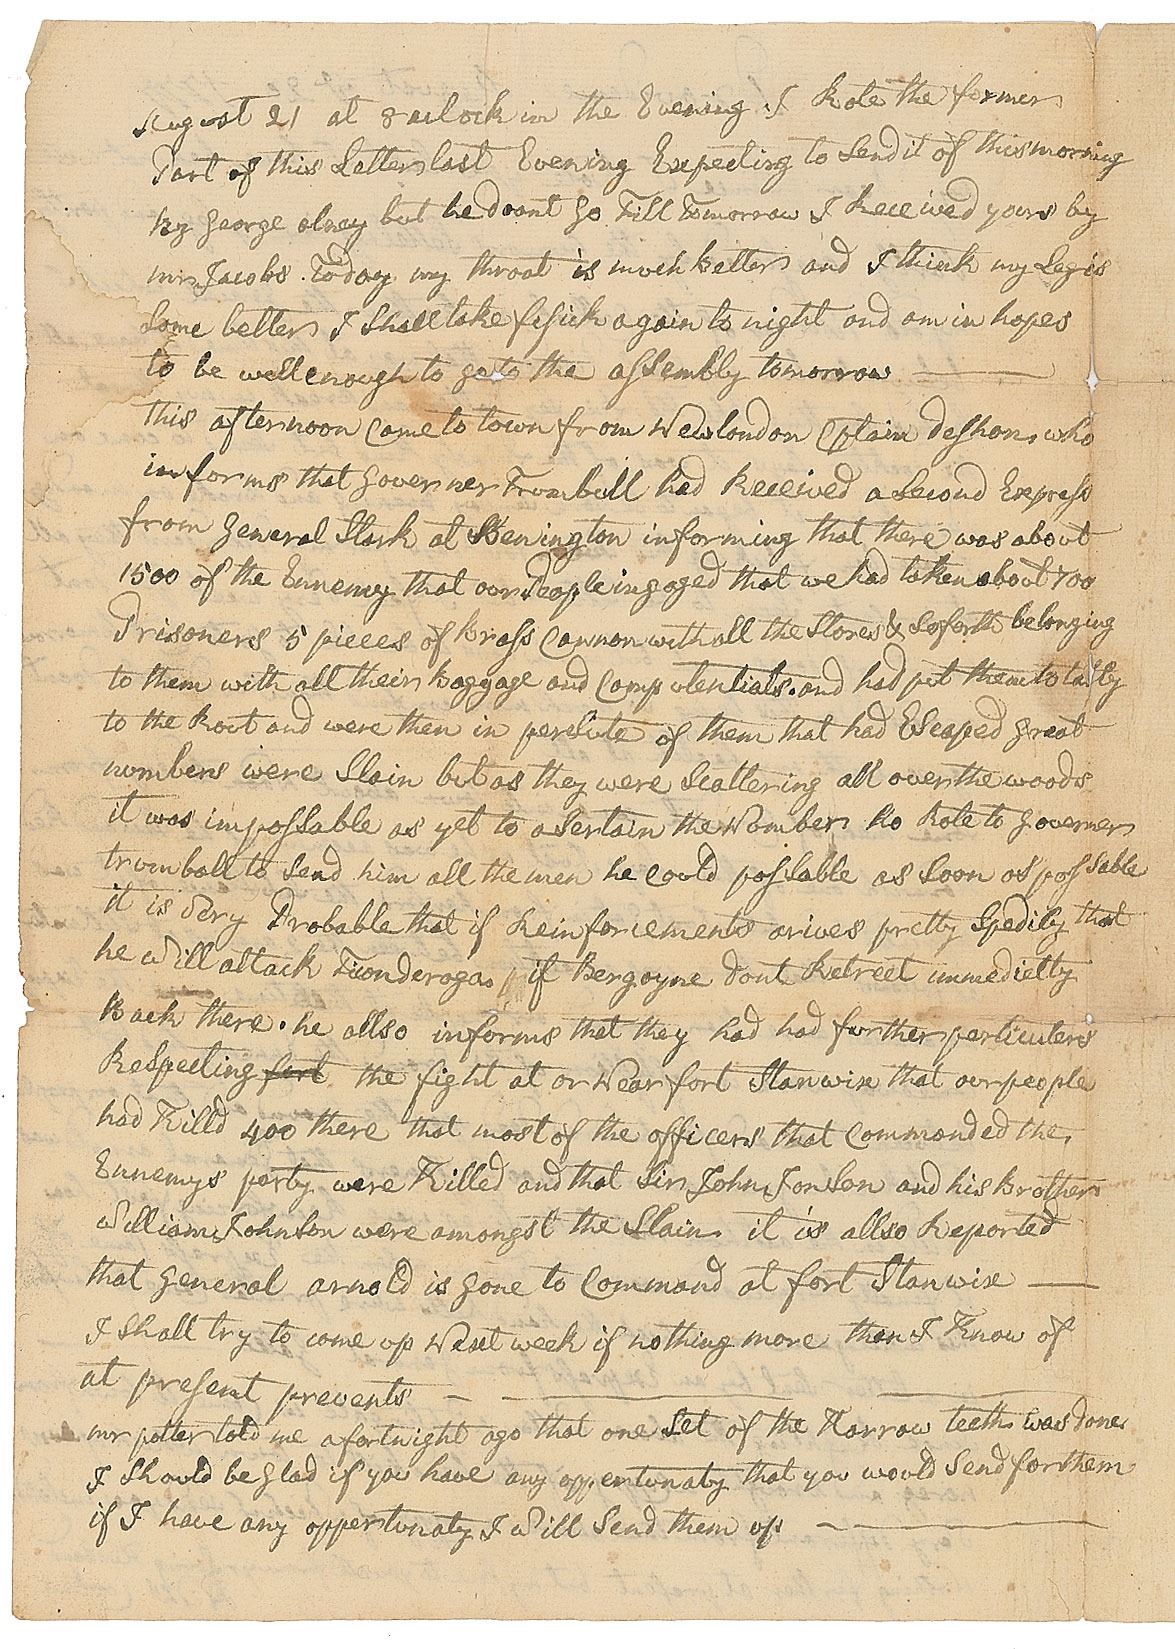 August 21 at 8 aclock in the Evening I Rote the former
Part of this Letter last Evening Expecting to Send it of this morning
by George olney but he doant Go Till Tomorrow I Received yours by
mr Jacobs. Today my throat is much better and I think my Leg is
Some better I Shall take fisick again to night and am in hopes
to be well enough to go to the assembly tomorrow
this afternoon Came to town from Newlondon Cptain Deshon who
informs that Governer Trumbull had Received a Second Express
from General Stark at Benington informing that there was about
1500 of the Ennemy that our People ingaged that we had taken about 700
Prisoners 5 pieces of brass Cannon with all the Stores & Soforth belonging
to them with all their baggage and Camp utentials. and had put them totally
to the Rout and were then in persute of them that had Escaped Great
numbers were Slain but as they were Scattering all over the woods
it was impossable as yet to asertain the Number he Rote to Governer
trumball to Send him all the men he Could possable as Soon as possable
it is Very Probable that if Reinforcements arives pretty Spedily that
he Will attack Ticonderoga if Bergoyne dont Retreet immedietly
Back there. he allso informs that they had had further particulers
Respecting fort the fight at or Near fort Stanwix that our people
had Killd 400 there that most of the officers that Commanded the
Ennemys party were Killed and that Sir John Jonson and his Brother
William Johnson were amongst the Slain it is allso Reported
that General arnold is gone to Command at fort Stanwix
I Shall try to come up Next week if nothing more than I Know of
at present prevents
mr potter told me a fortnight ago that one Set of the Harrow teeth was done
I Should be Glad if you have any oppertunaty that you would Send for them
if I have any oppertunaty I Will Send them up